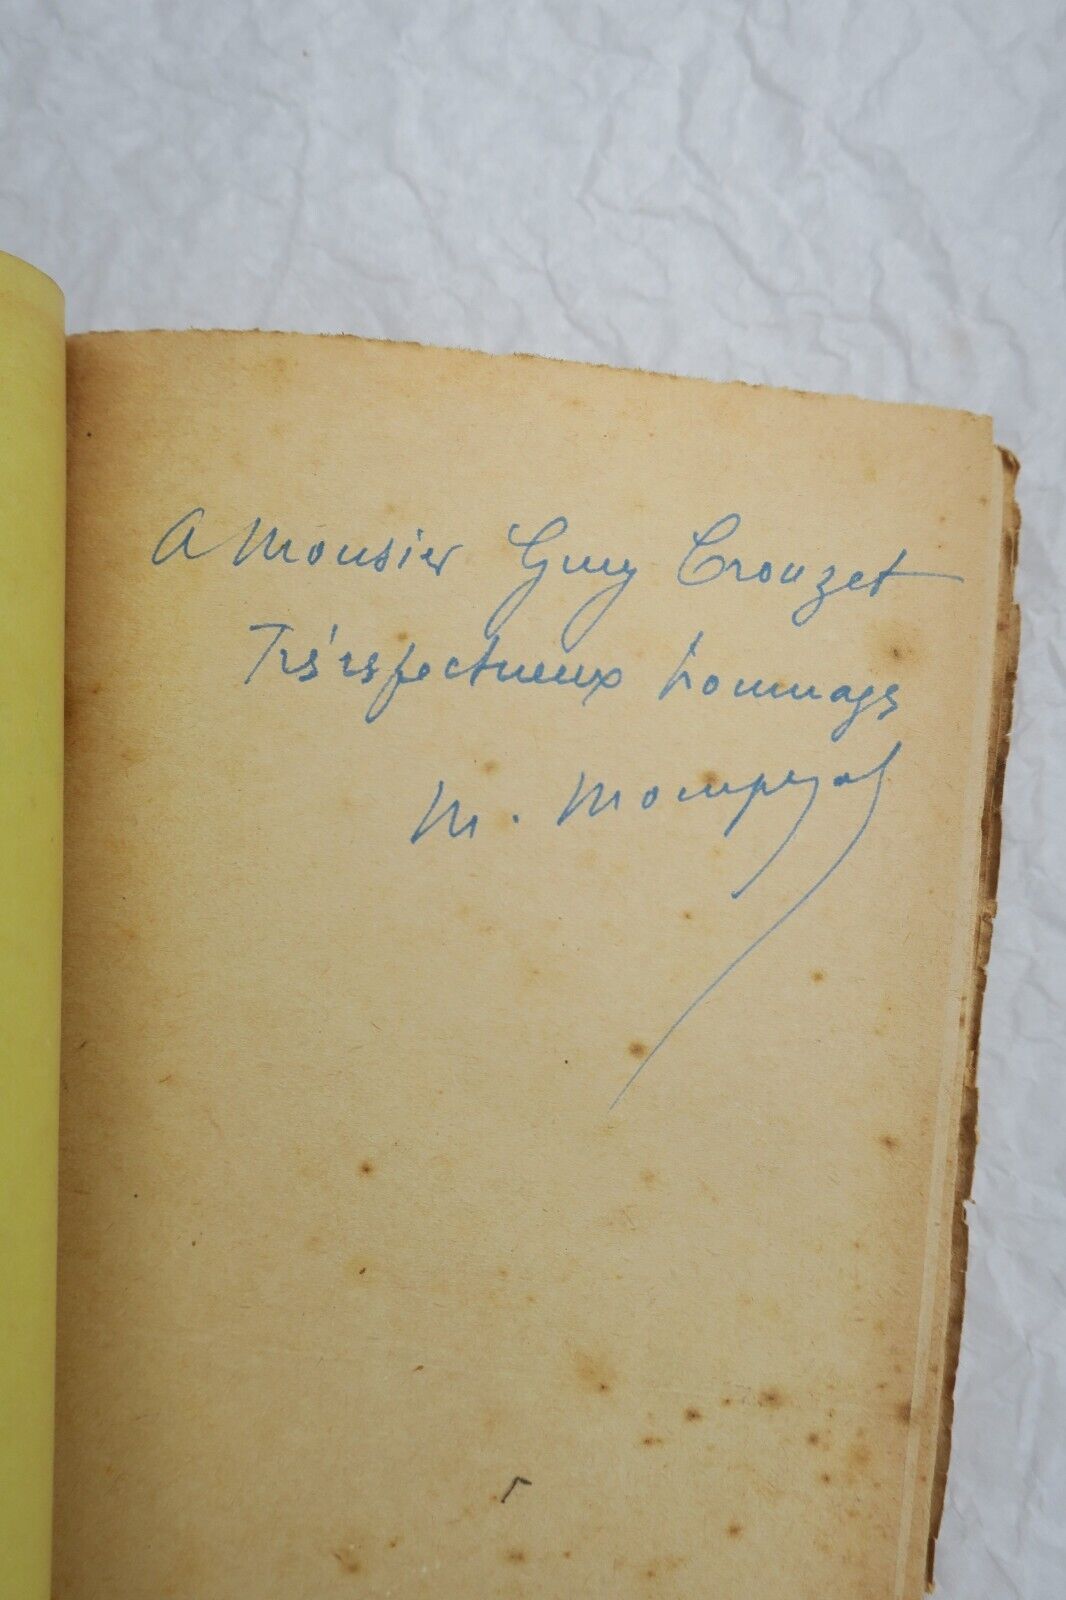 A Monsieur Guy Crouzet
Très respectueux hommage
M. Mompezat